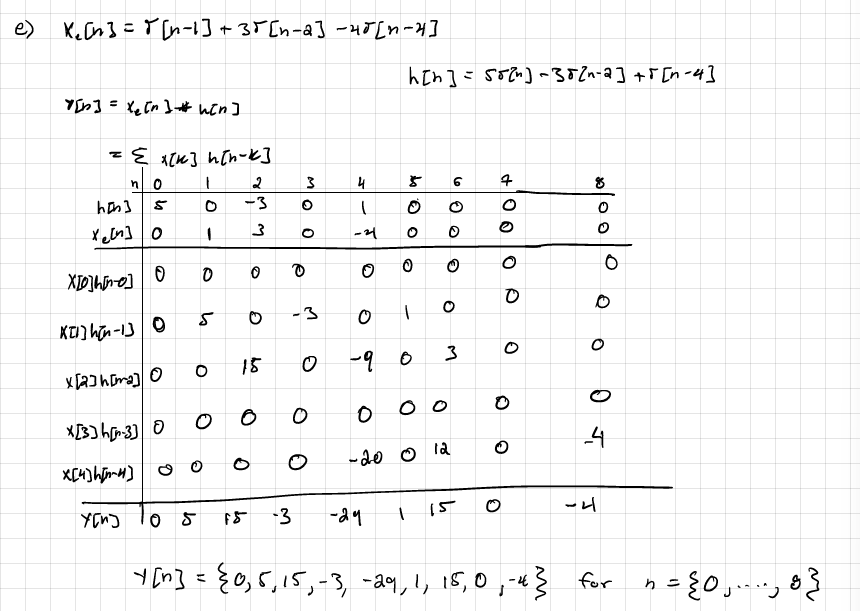 e) Xe[n] = δ[n-1] + 3δ[n-2] -4δ[n-4]
h[n] = 5δ[n] -3δ[n-2] +δ[n-4]
Y[n] = Xe[n] * h[n]
= Σ x[k] h[n-k]
n 0 1 2 3 4 5 6 7 8
h[n] 5 0 -3 0 1 0 0 0 0
Xe[n] 0 1 3 0 -4 0 0 0 0
X[0]h[n-0] 0 0 0 0 0 0 0 0 0
X[1]h[n-1] 0 5 0 -3 0 1 0 0 0
X[2]h[n-2] 0 0 15 0 -9 0 3 0 0
X[3]h[n-3] 0 0 0 0 0 0 0 0 0
X[4]h[n-4] 0 0 0 0 -20 0 12 0 -4
Y[n] 0 5 15 -3 -29 1 15 0 -4
Y[n] = {0,5,15,-3, -29,1, 15,0,-4} for n = {0,....,8}